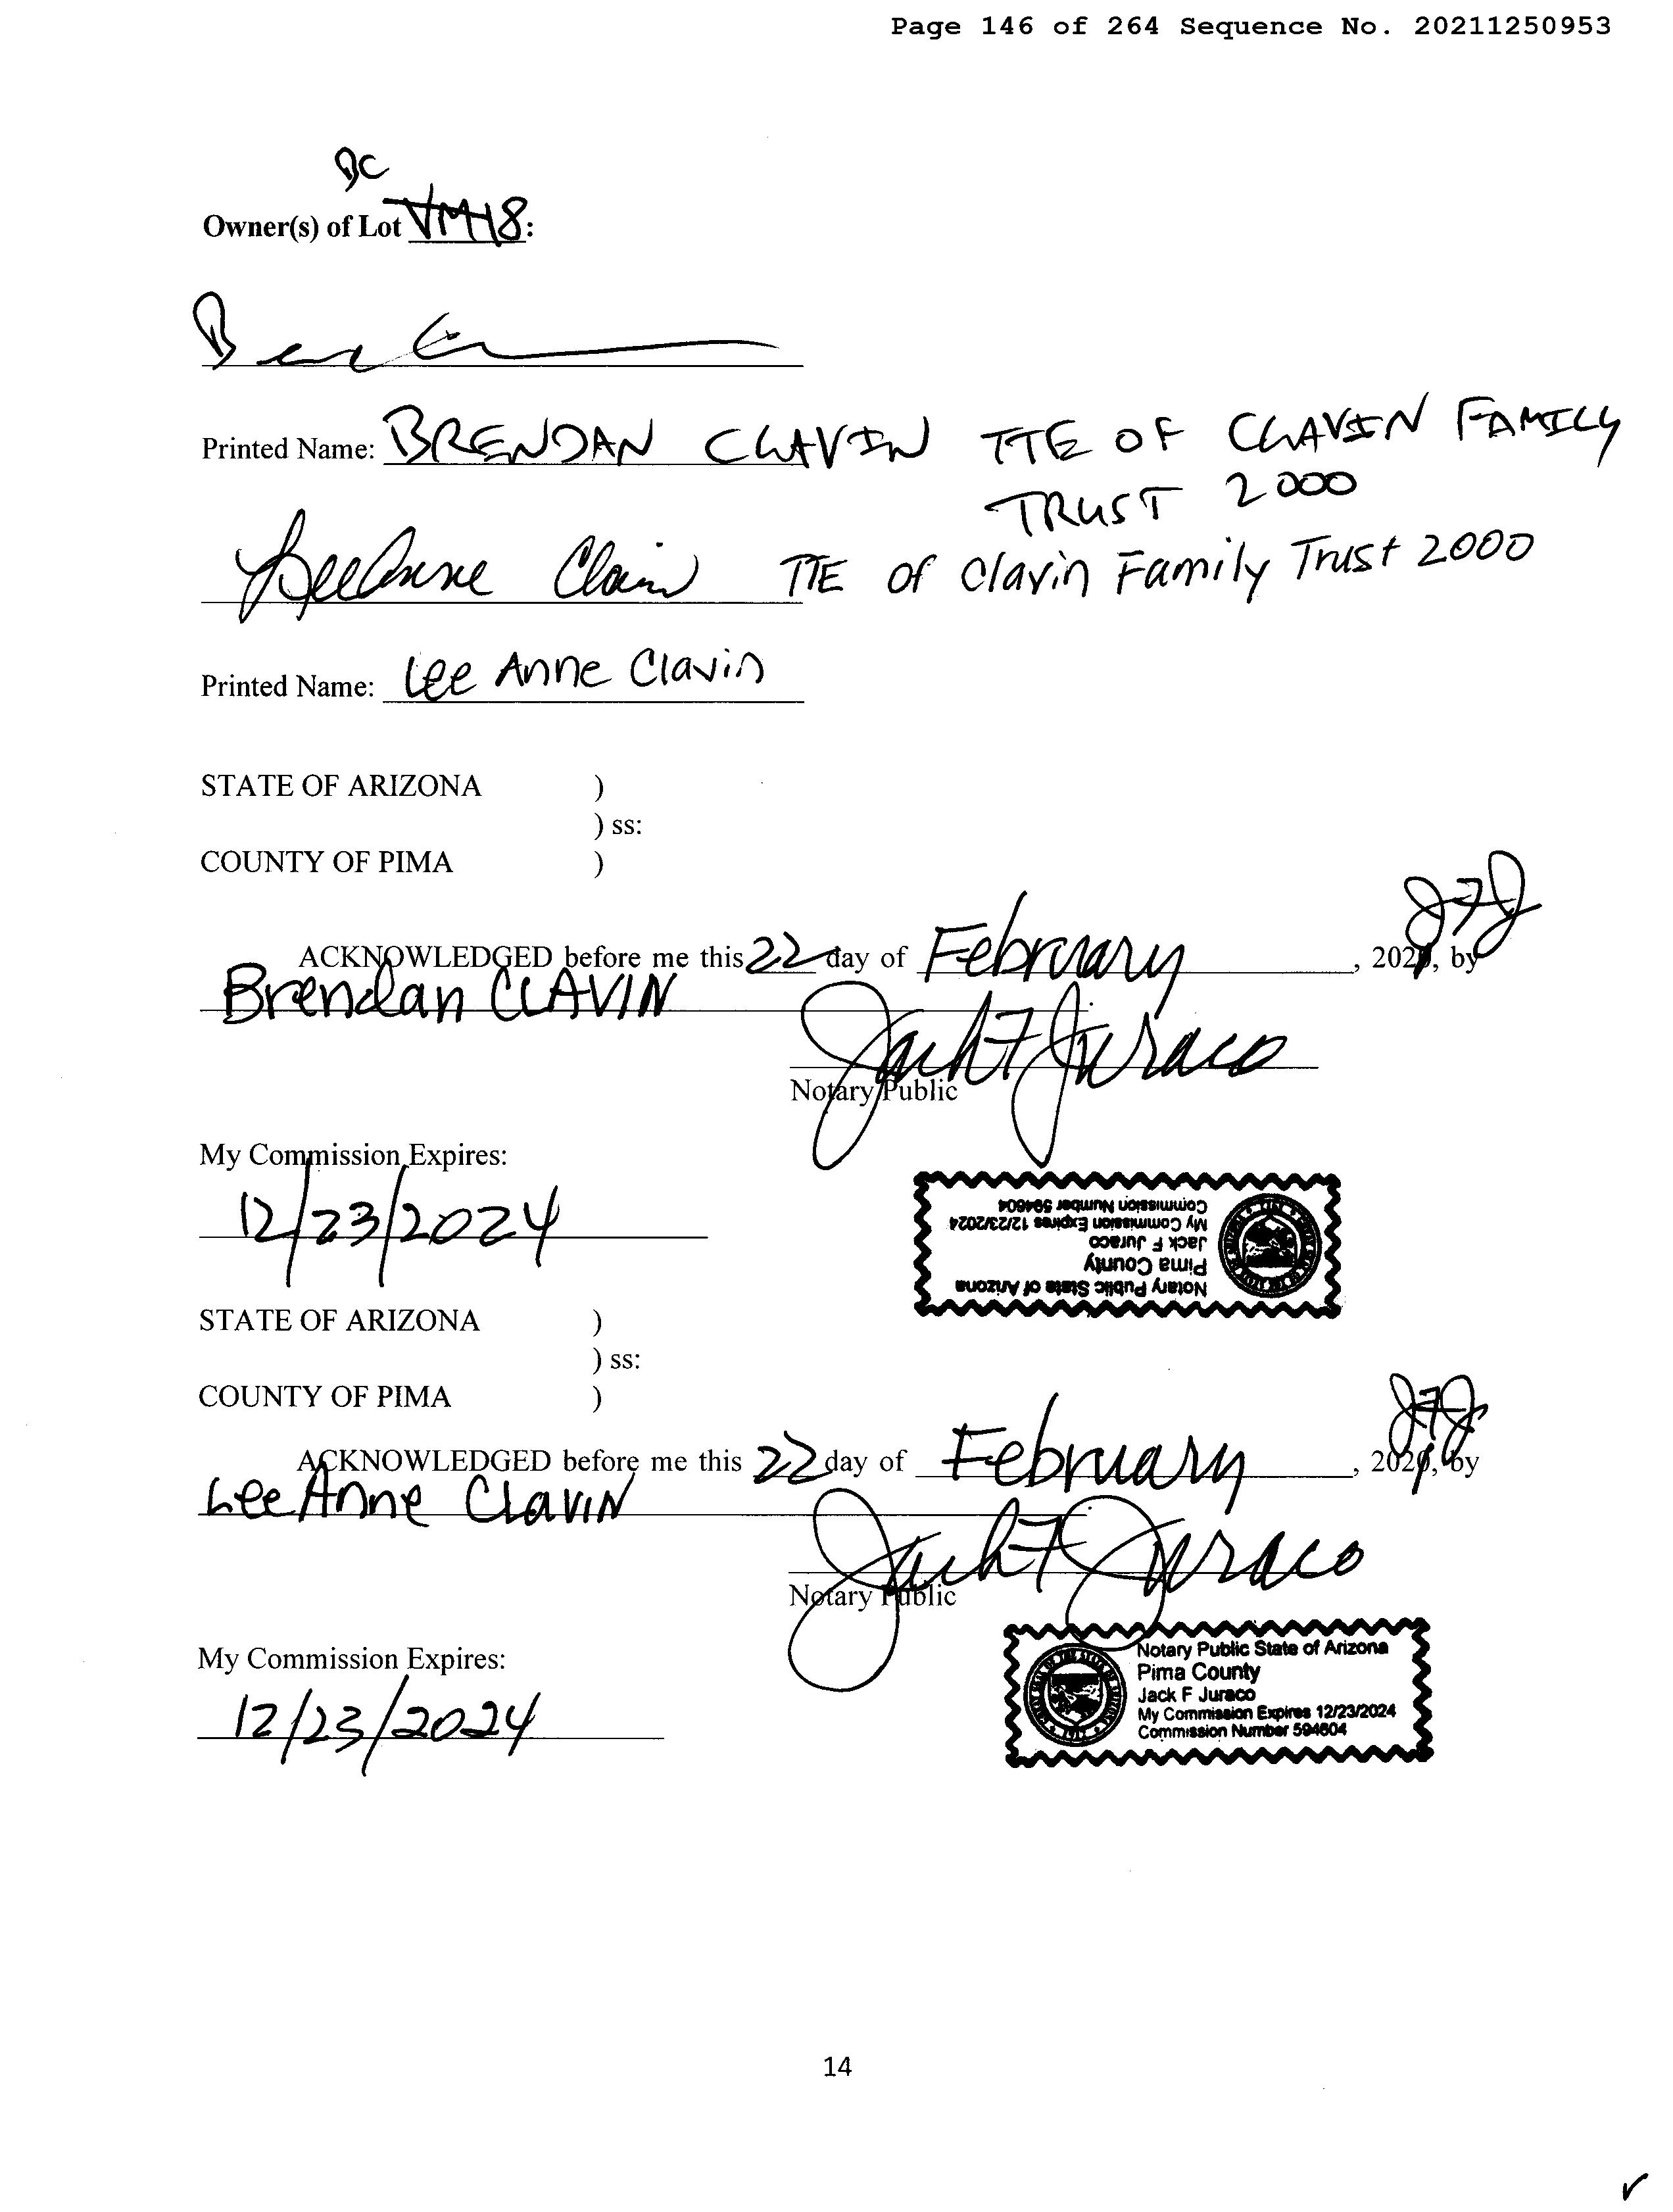 Page 146 of 264 Sequence No. 20211250953
BC
Owner(s) of Lot 18:
Printed Name: BRENDAN CLAVIN TTE OF CLAVIN FAMILY
TRUST 2000
LeeAnne Clavin TTE of Clavin Family Trust 2000
Printed Name: Lee Anne Clavin
STATE OF ARIZONA )
) ss:
COUNTY OF PIMA )
JFJ
ACKNOWLEDGED before me this 22 day of February, 2021, by
Brendan CLAVIN
Jack F Juraco
Notary Public
My Commission Expires:
12/23/2024
Notary Public State of Arizona
Pima County
Jack F Juraco
My Commission Expires 12/23/2024
Commission Number 594604
STATE OF ARIZONA )
) ss:
COUNTY OF PIMA )
JFJ
ACKNOWLEDGED before me this 22 day of February, 2021, by
Lee Anne ClaviN
Jack F Juraco
Notary Public
My Commission Expires:
12/23/2024
Notary Public State of Arizona
Pima County
Jack F Juraco
My Commission Expires 12/23/2024
Commission Number 594604
14